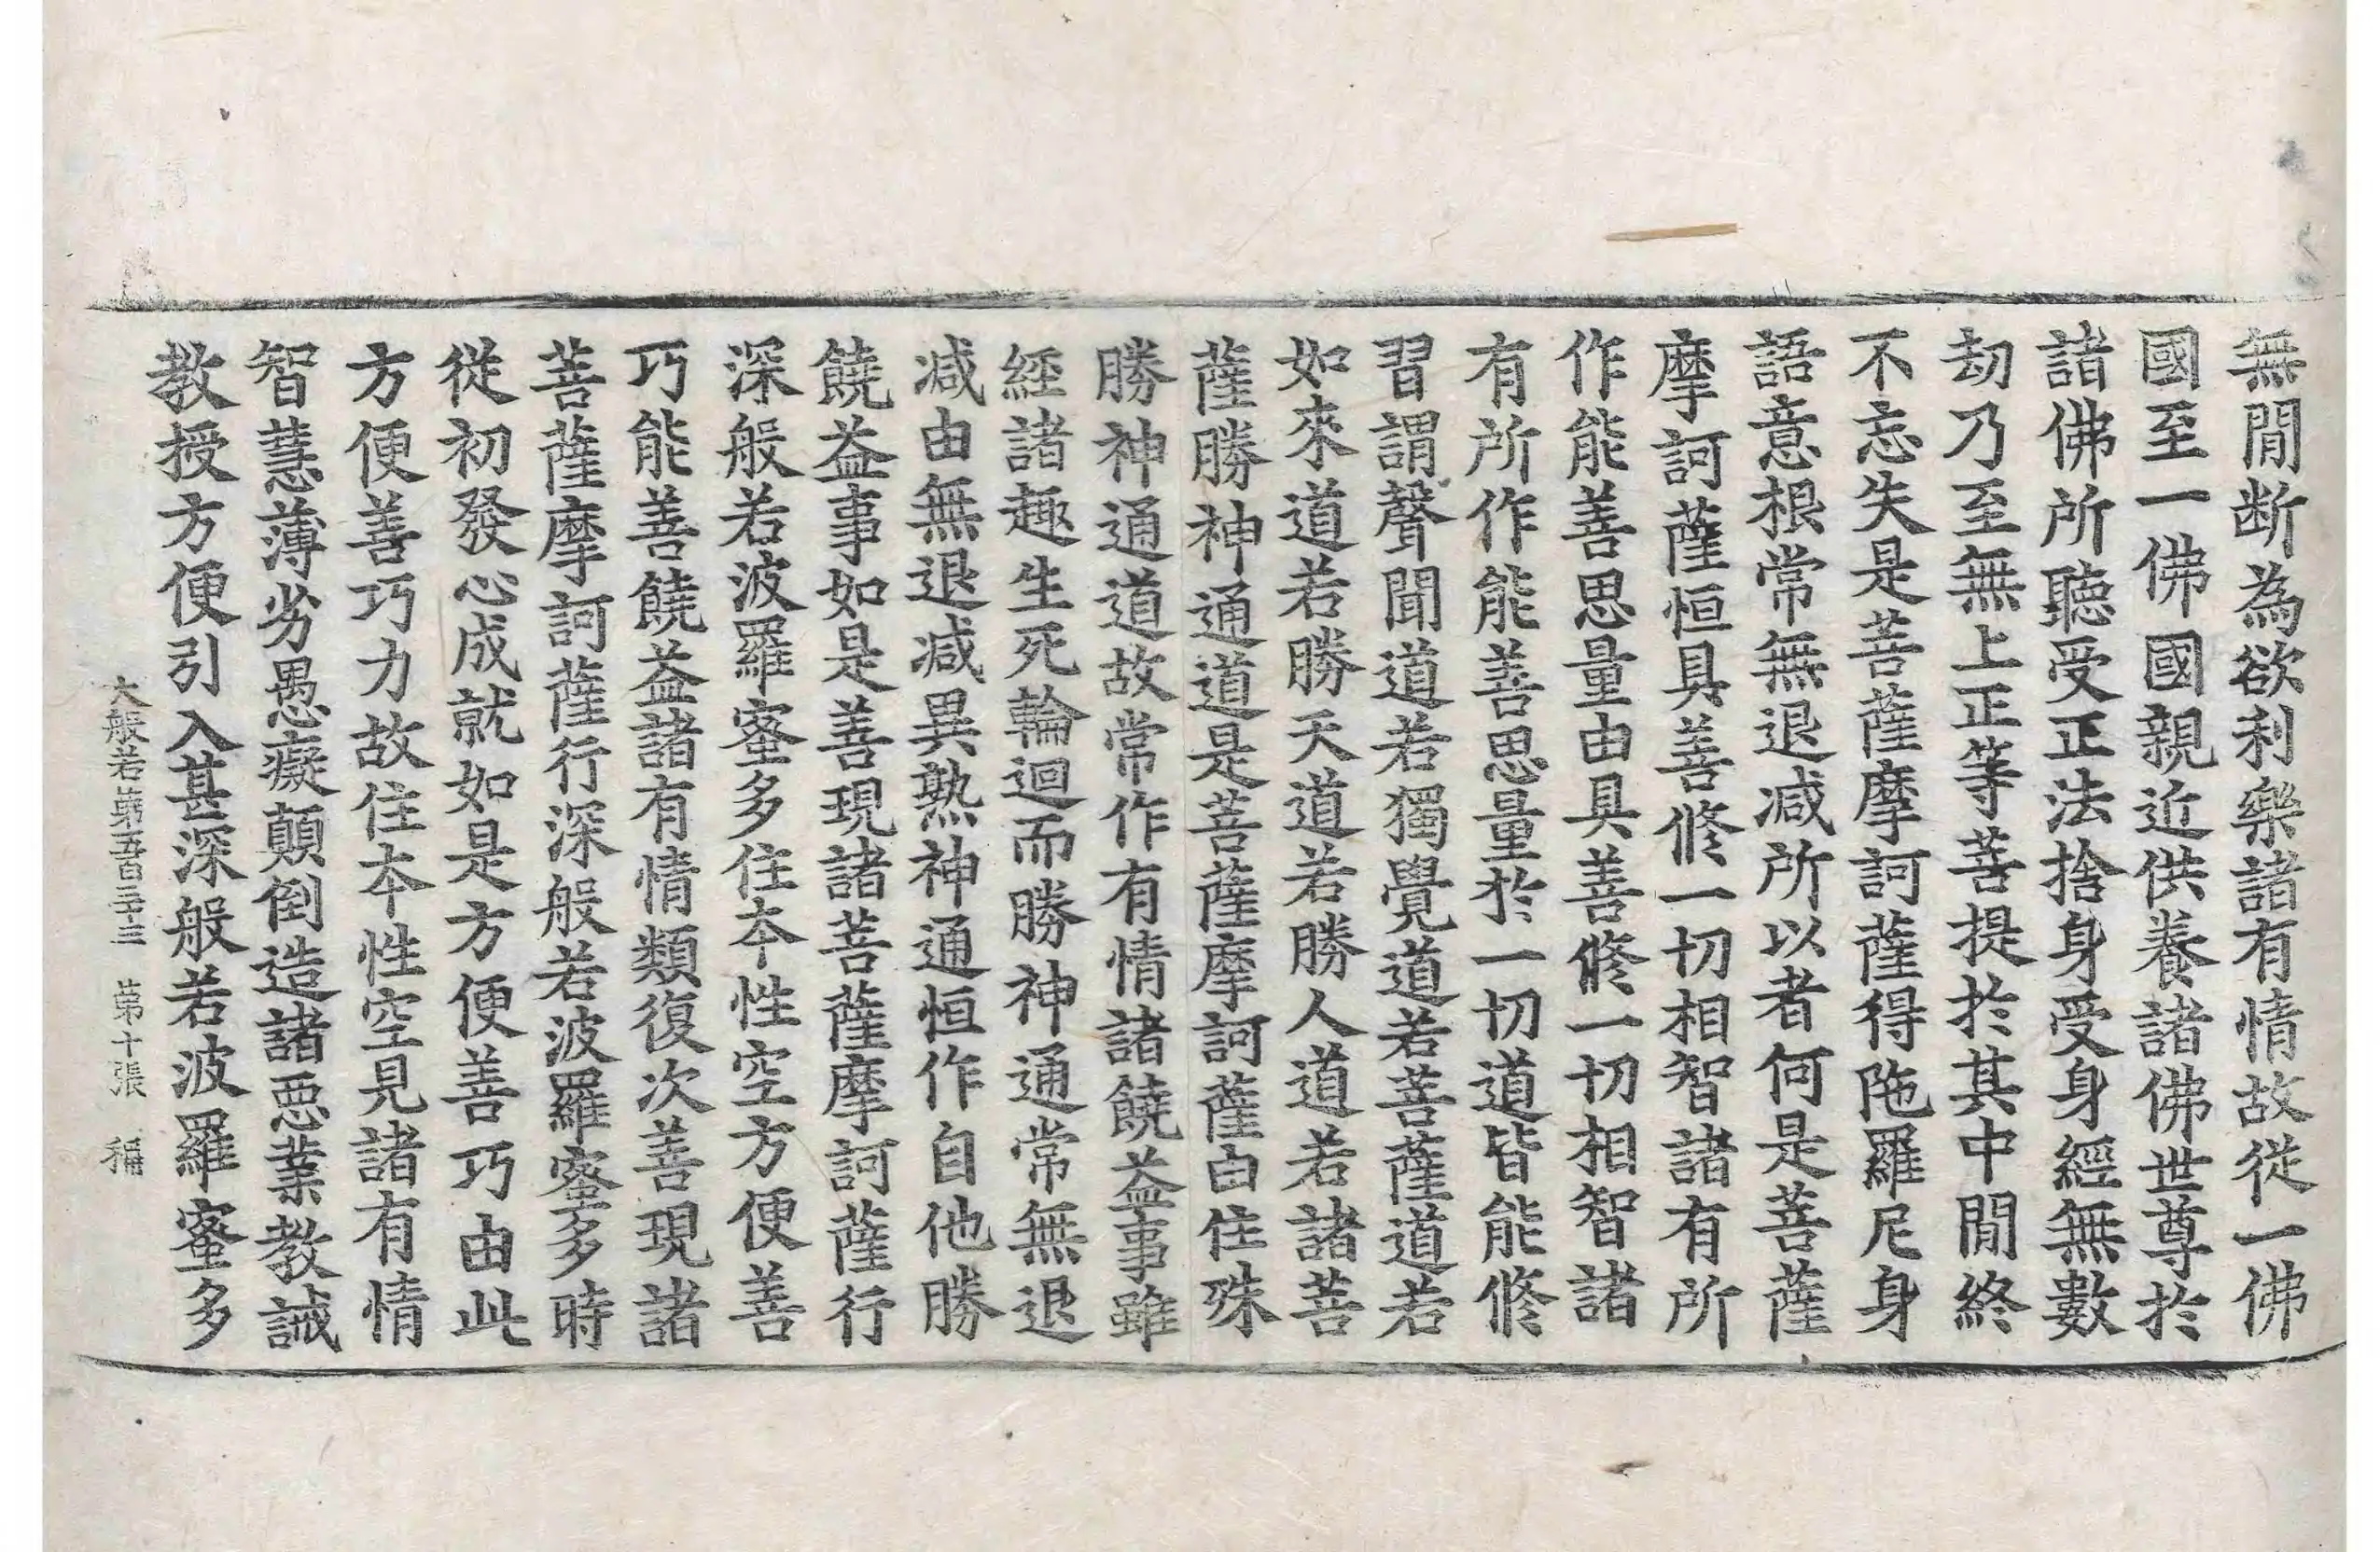 無閒断為欲利樂諸有情故従一佛
國至一佛國親近供養諸佛世尊於
諸佛所聽受正法捨身受身經無數
劫乃至無上正等菩提於其中閒終
不忘失是菩薩摩訶薩得陁羅尼身
語意根常無退减所以者何是菩薩
摩訶薩恒具善修一切相智諸有所
作能善思量由具善修一切相智諸
有所作能善思量於一切道皆能修
習謂聲聞道若獨覺道若菩薩道若
如來道若勝天道若勝人道若諸菩
薩勝神通道是菩薩摩訶薩白住殊
勝神通道故常作有情諸饒益事雖
經諸趣生死輪迴而勝神通常無退
减由無退减異熟神通恒作自他勝
饒益事如是善現諸菩薩摩訶薩行
深般若波羅蜜多住本性空方便善
巧能善饒益諸有情類復次善現諸
菩薩摩訶薩行深般若波羅蜜多時
従初發心成就如是方便善巧由此
方便善巧力故住本性空見諸有情
智慧薄劣愚癡顛倒造諸惡業教誡
教授方便引入甚深般若波羅蜜多
大般若第五百三十三 第十張 稱